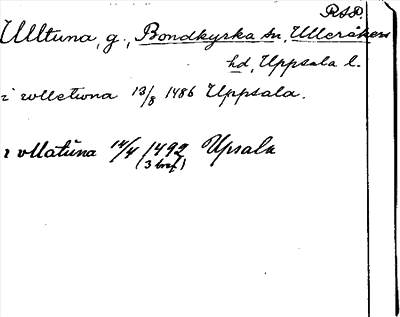 RAP.
Ulltuna, g., Bondkyrka sn, Ulleråkers
hd, Uppsala l.
i wlletwna 13/8 1486 Uppsala.
i vllatuna 14/4 1492 Upsala
(3 bref)